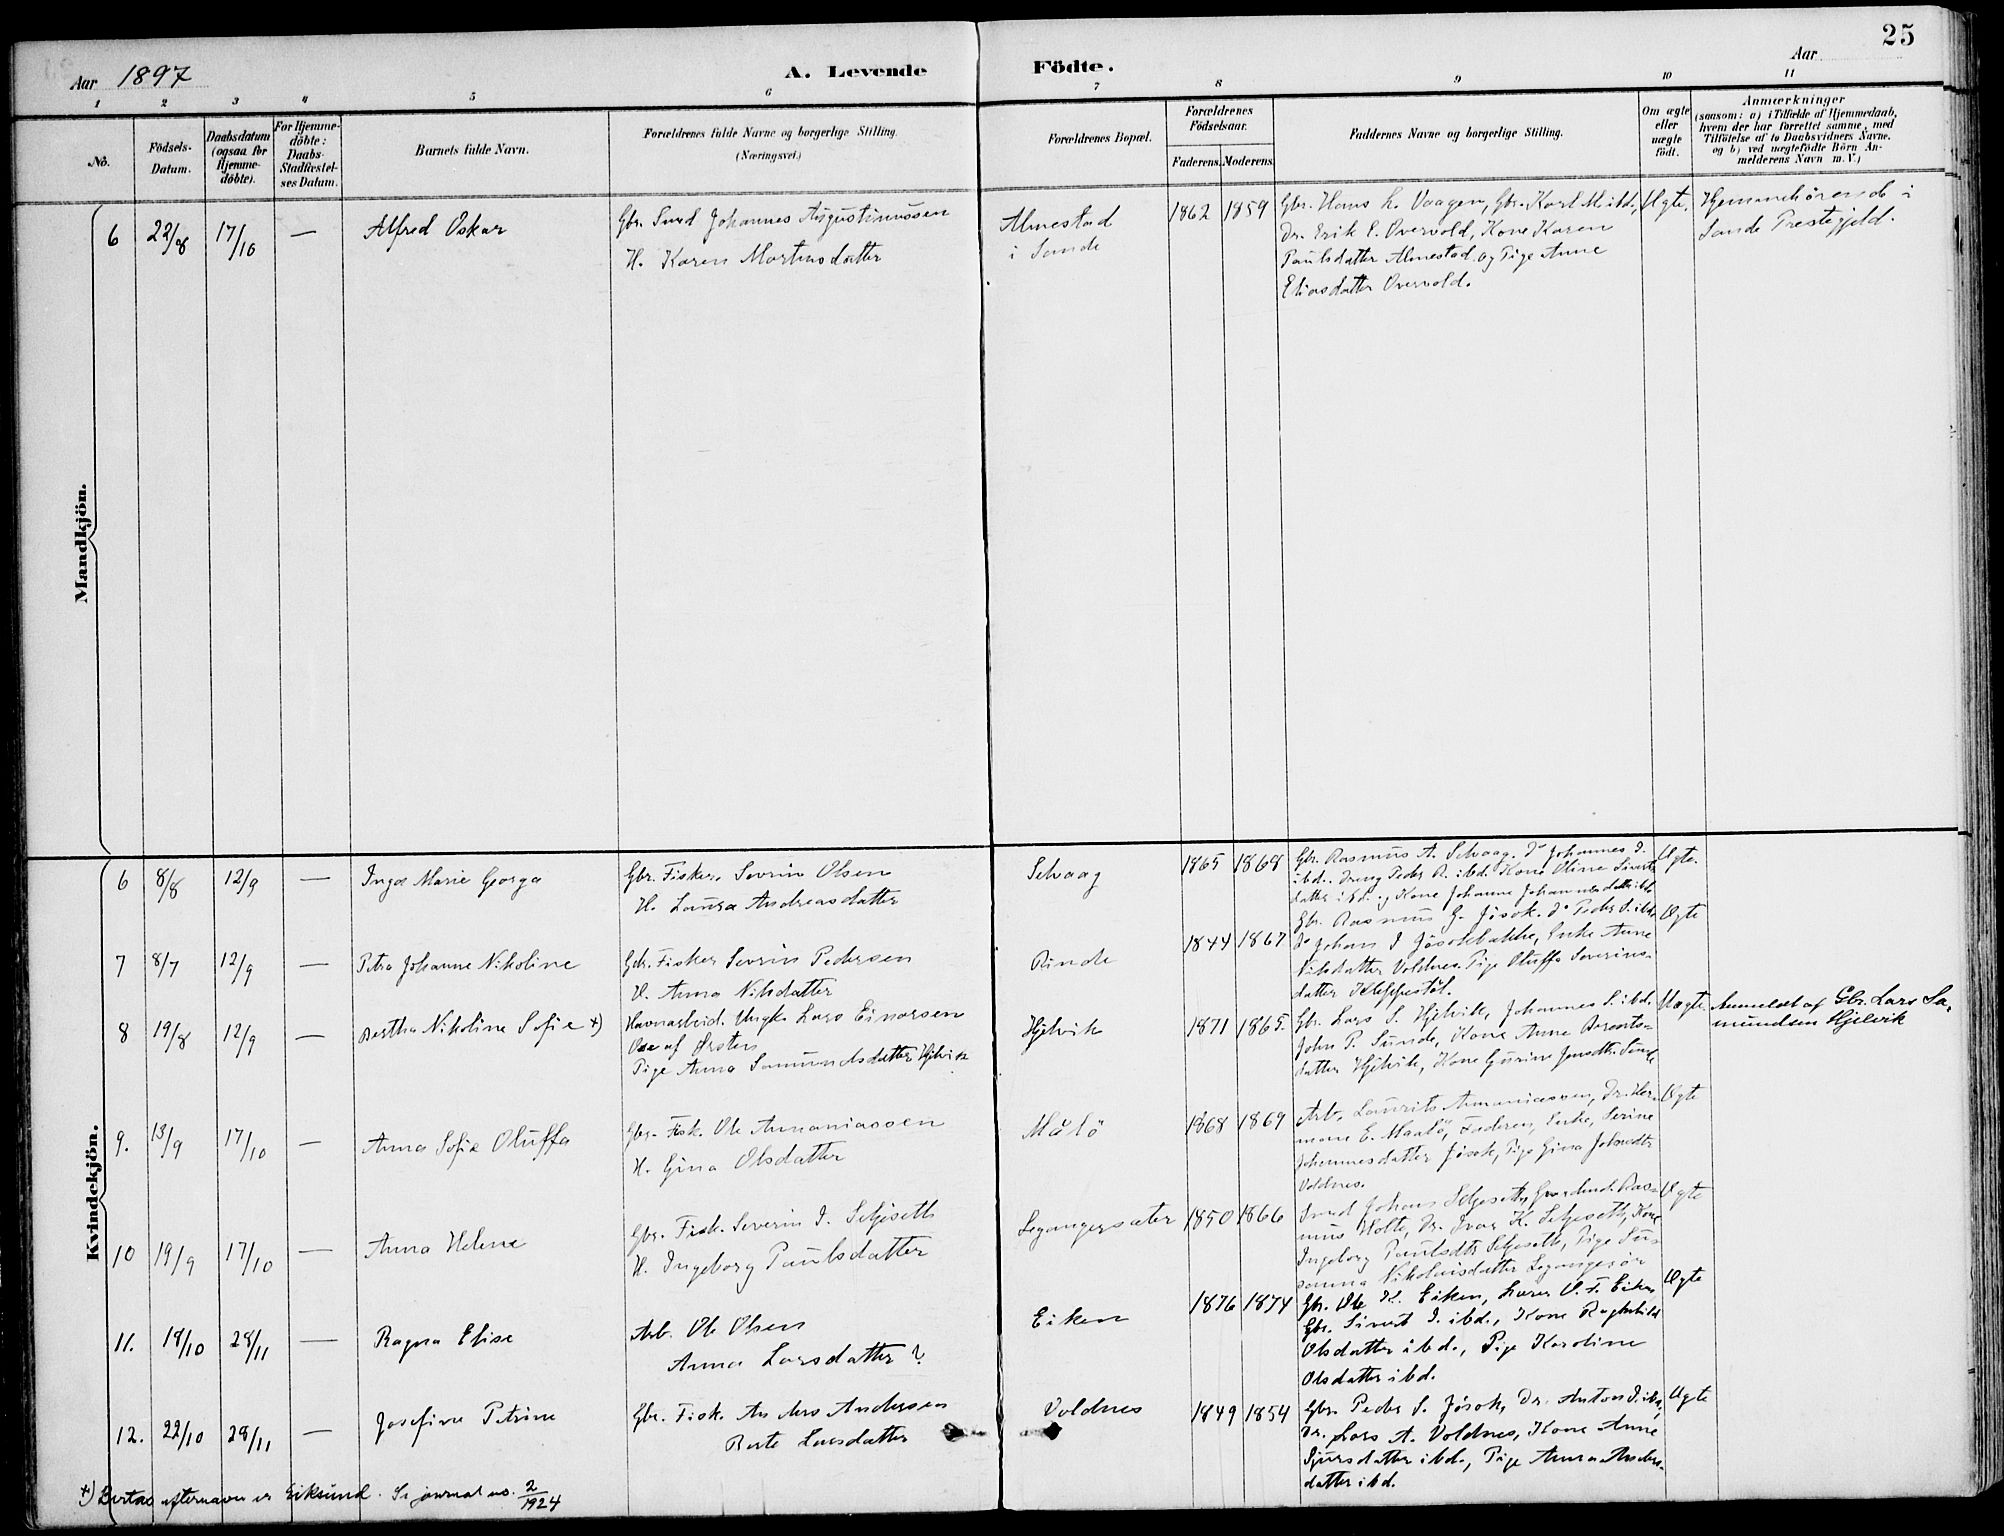 25
Aar 1897
A. Levende Födte.
Aar
1 2 3 4 5 6 7 8 9 10 11
No.
Födsels-Datum.
Daabsdatum (ogsaa for Hjemme-döbte).
For Hjemme-döbte: Daabs-Stadfæstel-ses Datum.
Barnets fulde Navn.
Forældrenes fulde Navne og borgerlige Stilling.
(Næringsvei.)
Forældrenes Bopæl.
Forældrenes Födselsaar.
Faderens. Moderens.
Faddernes Navne og borgerlige Stilling.
Om ægte eller uægte födt.
Anmærkninger
(saasom: a) i Tilfælde af Hjemmedaab,
hvem der har forrettet samme, med
Tilföielse af to Daabsvidners Navne.
og b) ved uægtefödte Börn An-
melderens Navn m. V.)
Mandkjön.
6 22/8 17/10 — Alfred Oskar
Gbr. Smed Johannes Augustinussen
H. Karen Martinsdatter
Almestad
i Sande
1862 1859
Gbr. Hans L. Vaagen, Gbr. Karl M. ibd.,
Dr. Erik E. Overvold, Kone Karen
Paulsdatter Almestad og Pige Anne
Eliasdatter Overvold.
Ægte.
Hjemmehörende i
Sande Prestegjeld.
Kvindekjön.
6 8/8 12/9 — Inga Marie Georga
Gbr. Fisker Sevrin Olsen
H. Laura Andreasdatter
Selvaag
1865 1868
Gbr. Rasmus A. Selvaag. Do Johannes J.
ibd. Dreng Peder R. ibd. Kone Oline Siverts-
datter ibd. og Kone Johanne Johannesdatter ibd.
Ægte.
7 8/7 12/9 — Petra Johanne Nikoline
Gbr. Fisker Sevrin Pedersen
H. Anna Nilsdatter
Rinde
1844 1867
Gbr. Rasmus G. Jösok. Do Peder S. ibd.
Do Johan J Jösokbakke, Enke Anne
Nilsdatter Voldnes. Pige Oluffa Severins-
datter Kleppestöl.
Ægte
8 19/8 12/9 — Bertha Nikoline Sofie +)
Havnarbeid. Ungk. Lars Einarsen
Ose af Örsten
Pige Anna Samundsdatter Hjelvik
Hjelvik
1871 1865.
Gbr. Lars S. Hjelvik, Johannes S. ibd.
John P. Sunde, Kone Anne Berents-
datter Hjelvik, Kone Gurine Jensdtr. Sunde
Uægte
Anmeldt af Gbr. Lars Sa-
mundsen Hjelvik
9. 13/9 17/10 — Anna Sofie Oluffa
Gbr. Fisk. Ole Annaniassen
H. Gina Olsdatter
Målö
1868 1869
Arb. Laurits Annaniassen, Dr. Her-
mann E. Maalö, Faderen, Enke, Serine
Johannesdatter Jösok, Pige Gina Johnsdtr.
Voldnes.
Ægte
10 19/9 17/10 — Anna Helene
Gbr. Fisk. Severin J. Setjeseth
H. Ingeborg Paulsdatter
Leganger sæter
1850 1866
Smed Johans Setjeseth, Gaardmd. Ras-
mus Holte, Dr. Ivar K. Setjeseth, Kone
Ingeborg Paulsdtr Setjeseth, Pige Su-
sanna Nikolaisdatter Legangersör
Ægte
11. 18/10 28/11 — Ragna Elise
Arb. Ole Olsen
Anna Larsdatter ?
Eiken
1876 1874
Gbr. Ole K. Eiken, Lærer O. F. Eiken
Gbr. Sivert I. ibd., Kone Ragnhild
Olsdatter ibd., Pige Karoline
Olsdatter ibd.
Ægte
12. 22/10 28/11 — Josefine Petrine
Gbr. Fisk. Anders Andersen
Berte Larsdatter
Voldnes
1849 1854
Gbr. Peder S. Jösok, Dr. Anton I. ibd.,
Dr. Lars A. Voldnes, Kone Anne
Sjursdatter ibd., Pige Anna Anders-
datter ibd.
Ægte
+) Bertas efternavn er Eiksund. Se journal no. 2/1924